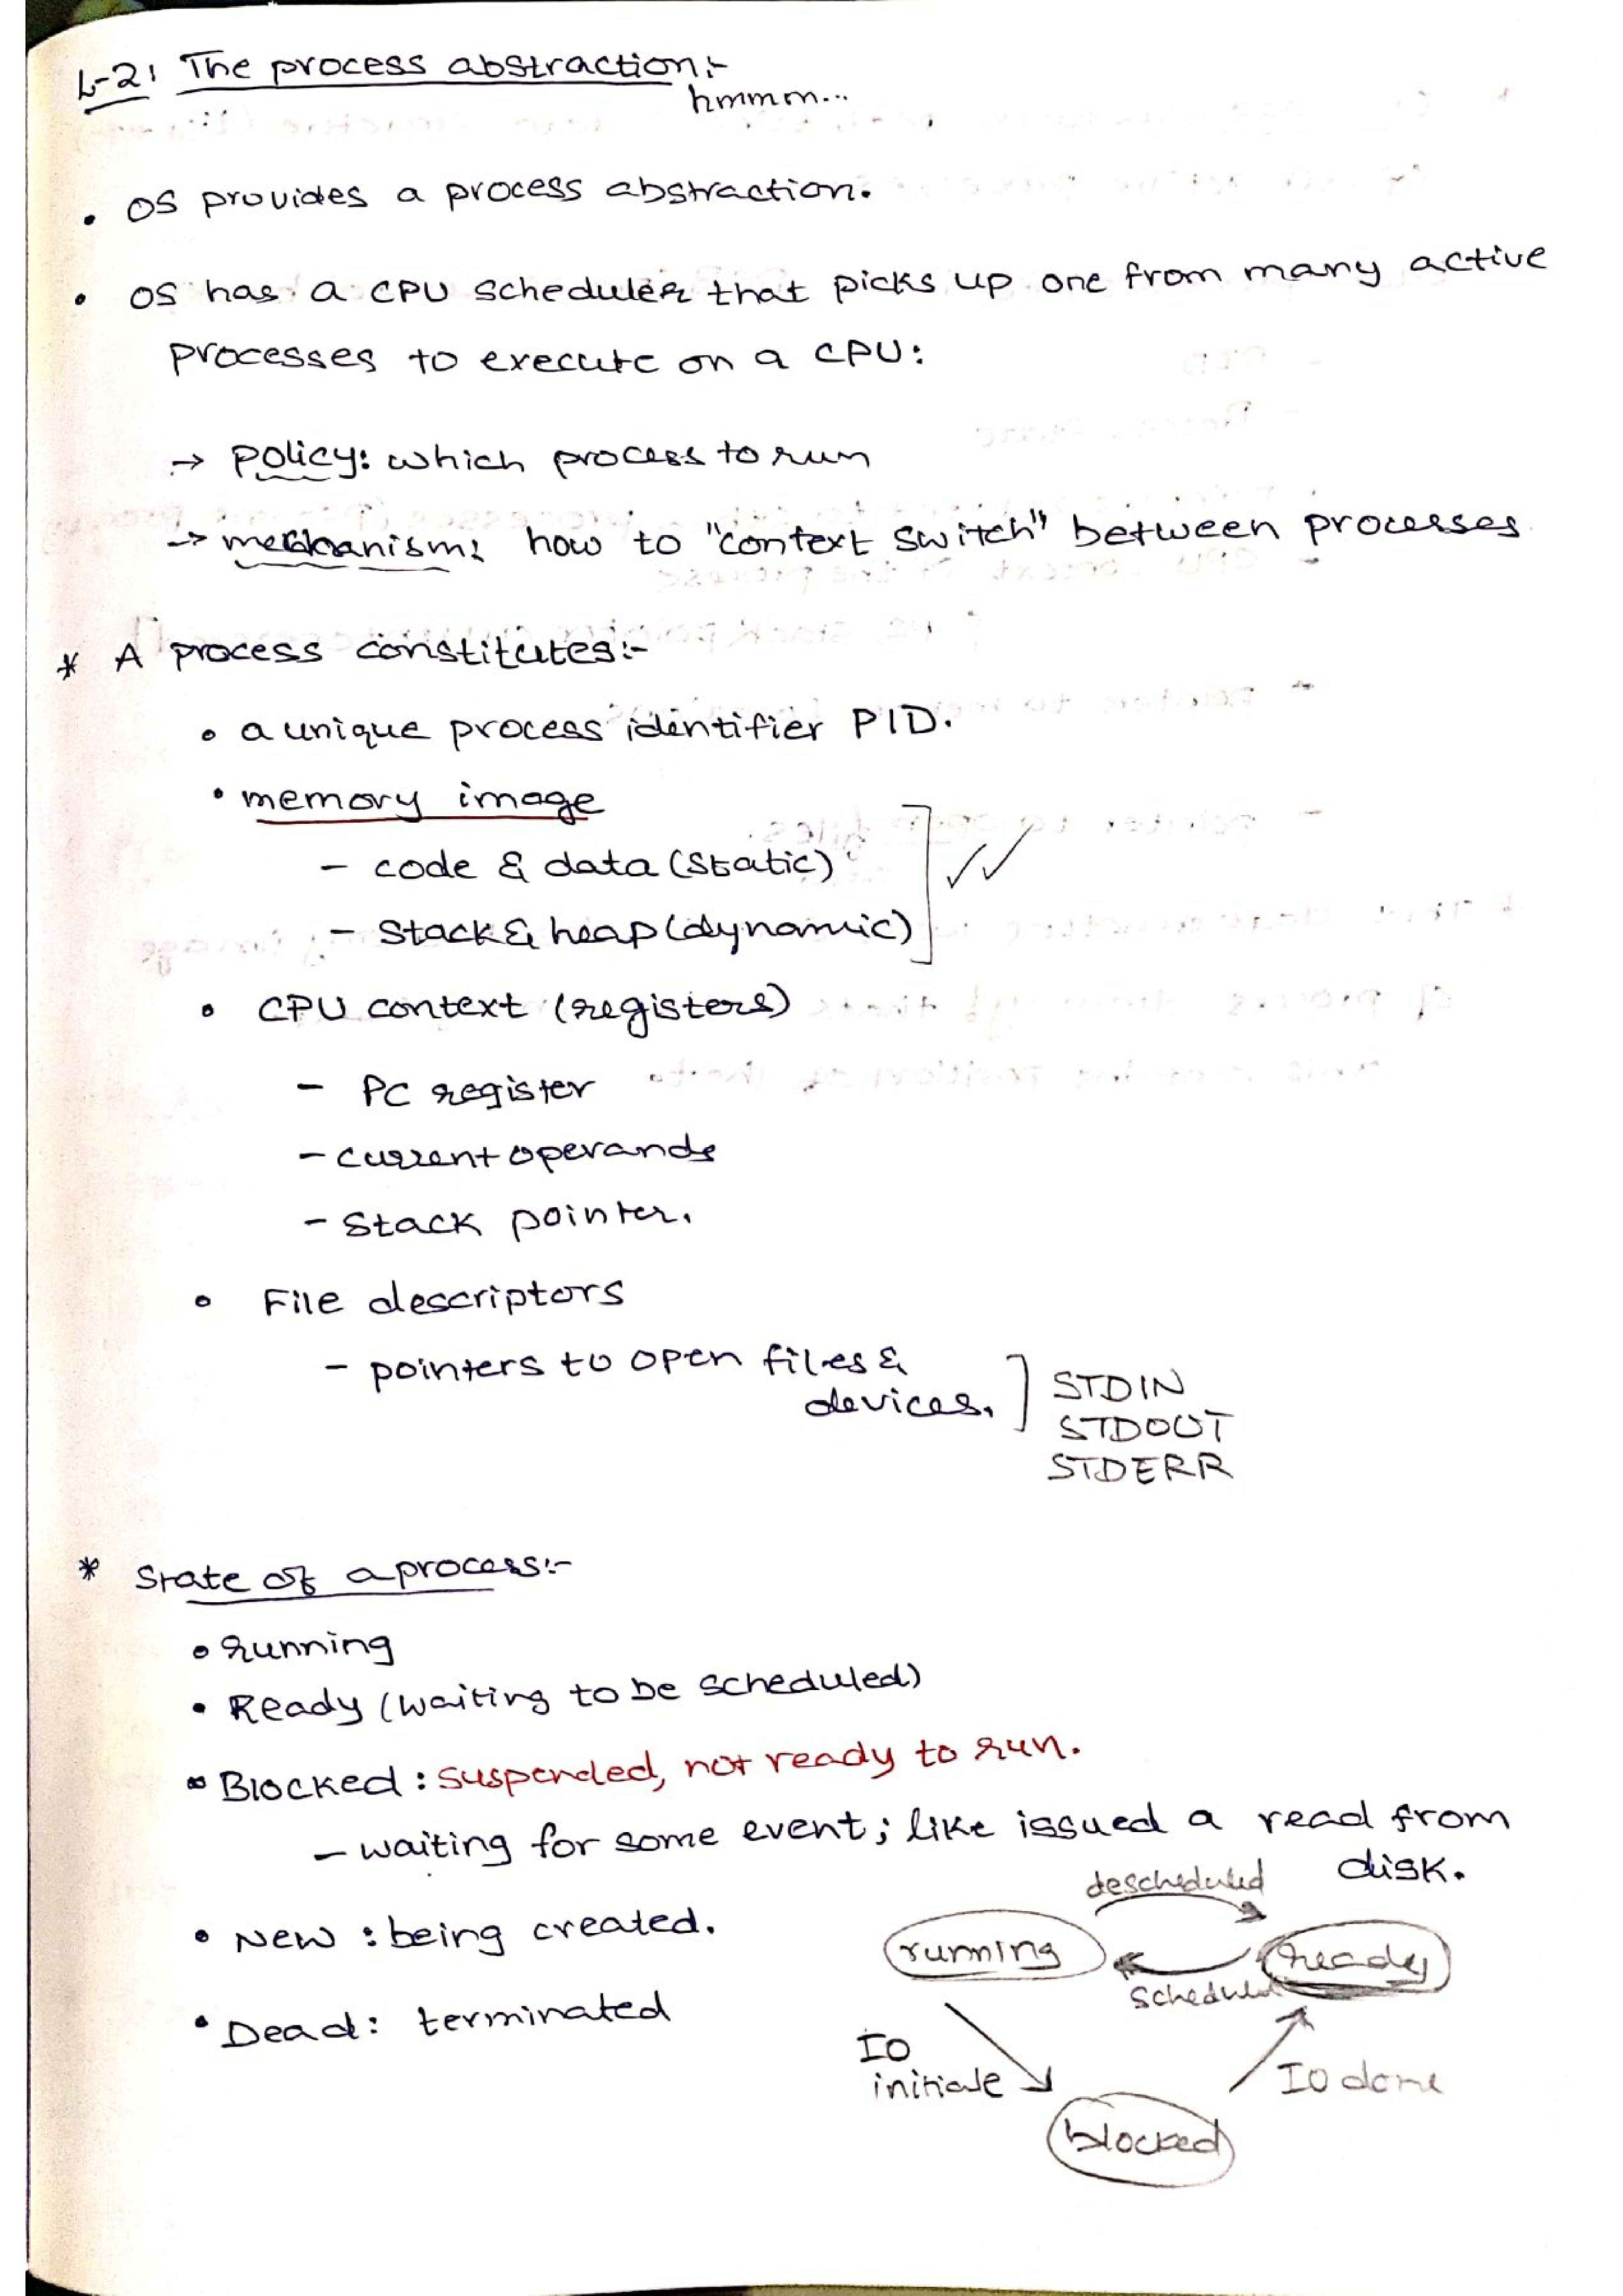 L-2: The process abstraction:-
hmmm...
• OS provides a process abstraction.
• OS has a CPU scheduler that picks up one from many active
processes to execute on a CPU:
→ policy: which process to run
→ mechanism: how to "context switch" between processes
* A process constitutes:-
• a unique process identifier PID.
• memory image
- code & data (static)
- Stack & heap (dynamic)
• CPU context (registers)
- PC register
- current operands
- Stack pointer.
• File descriptors
- pointers to open files &
devices.
STDIN
STDOUT
STDERR
* State of a process:-
• running
• Ready (waiting to be scheduled)
• Blocked : suspended, not ready to run.
- waiting for some event; like issued a read from
disk.
• New : being created.
• Dead : terminated
descheduled
running
ready
scheduled
IO
initiate
IO done
blocked